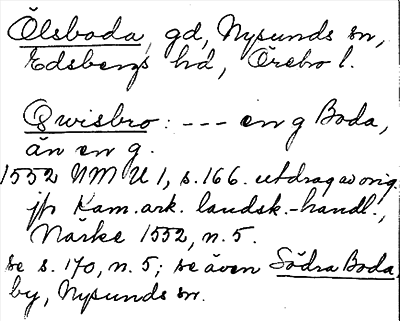 Ölsboda, gd, Nysunds sn,
Edsbergs hd, Örebro l.
Qwisbro: --- en g Boda,
än en g.
1552 NM U 1, s. 166. utdrag av orig.
jfr Kam. ark. landsk.-handl.,
Närke 1552, n. 5.
se s. 170, n. 5; se även Södra Boda,
by, Nysunds sn.